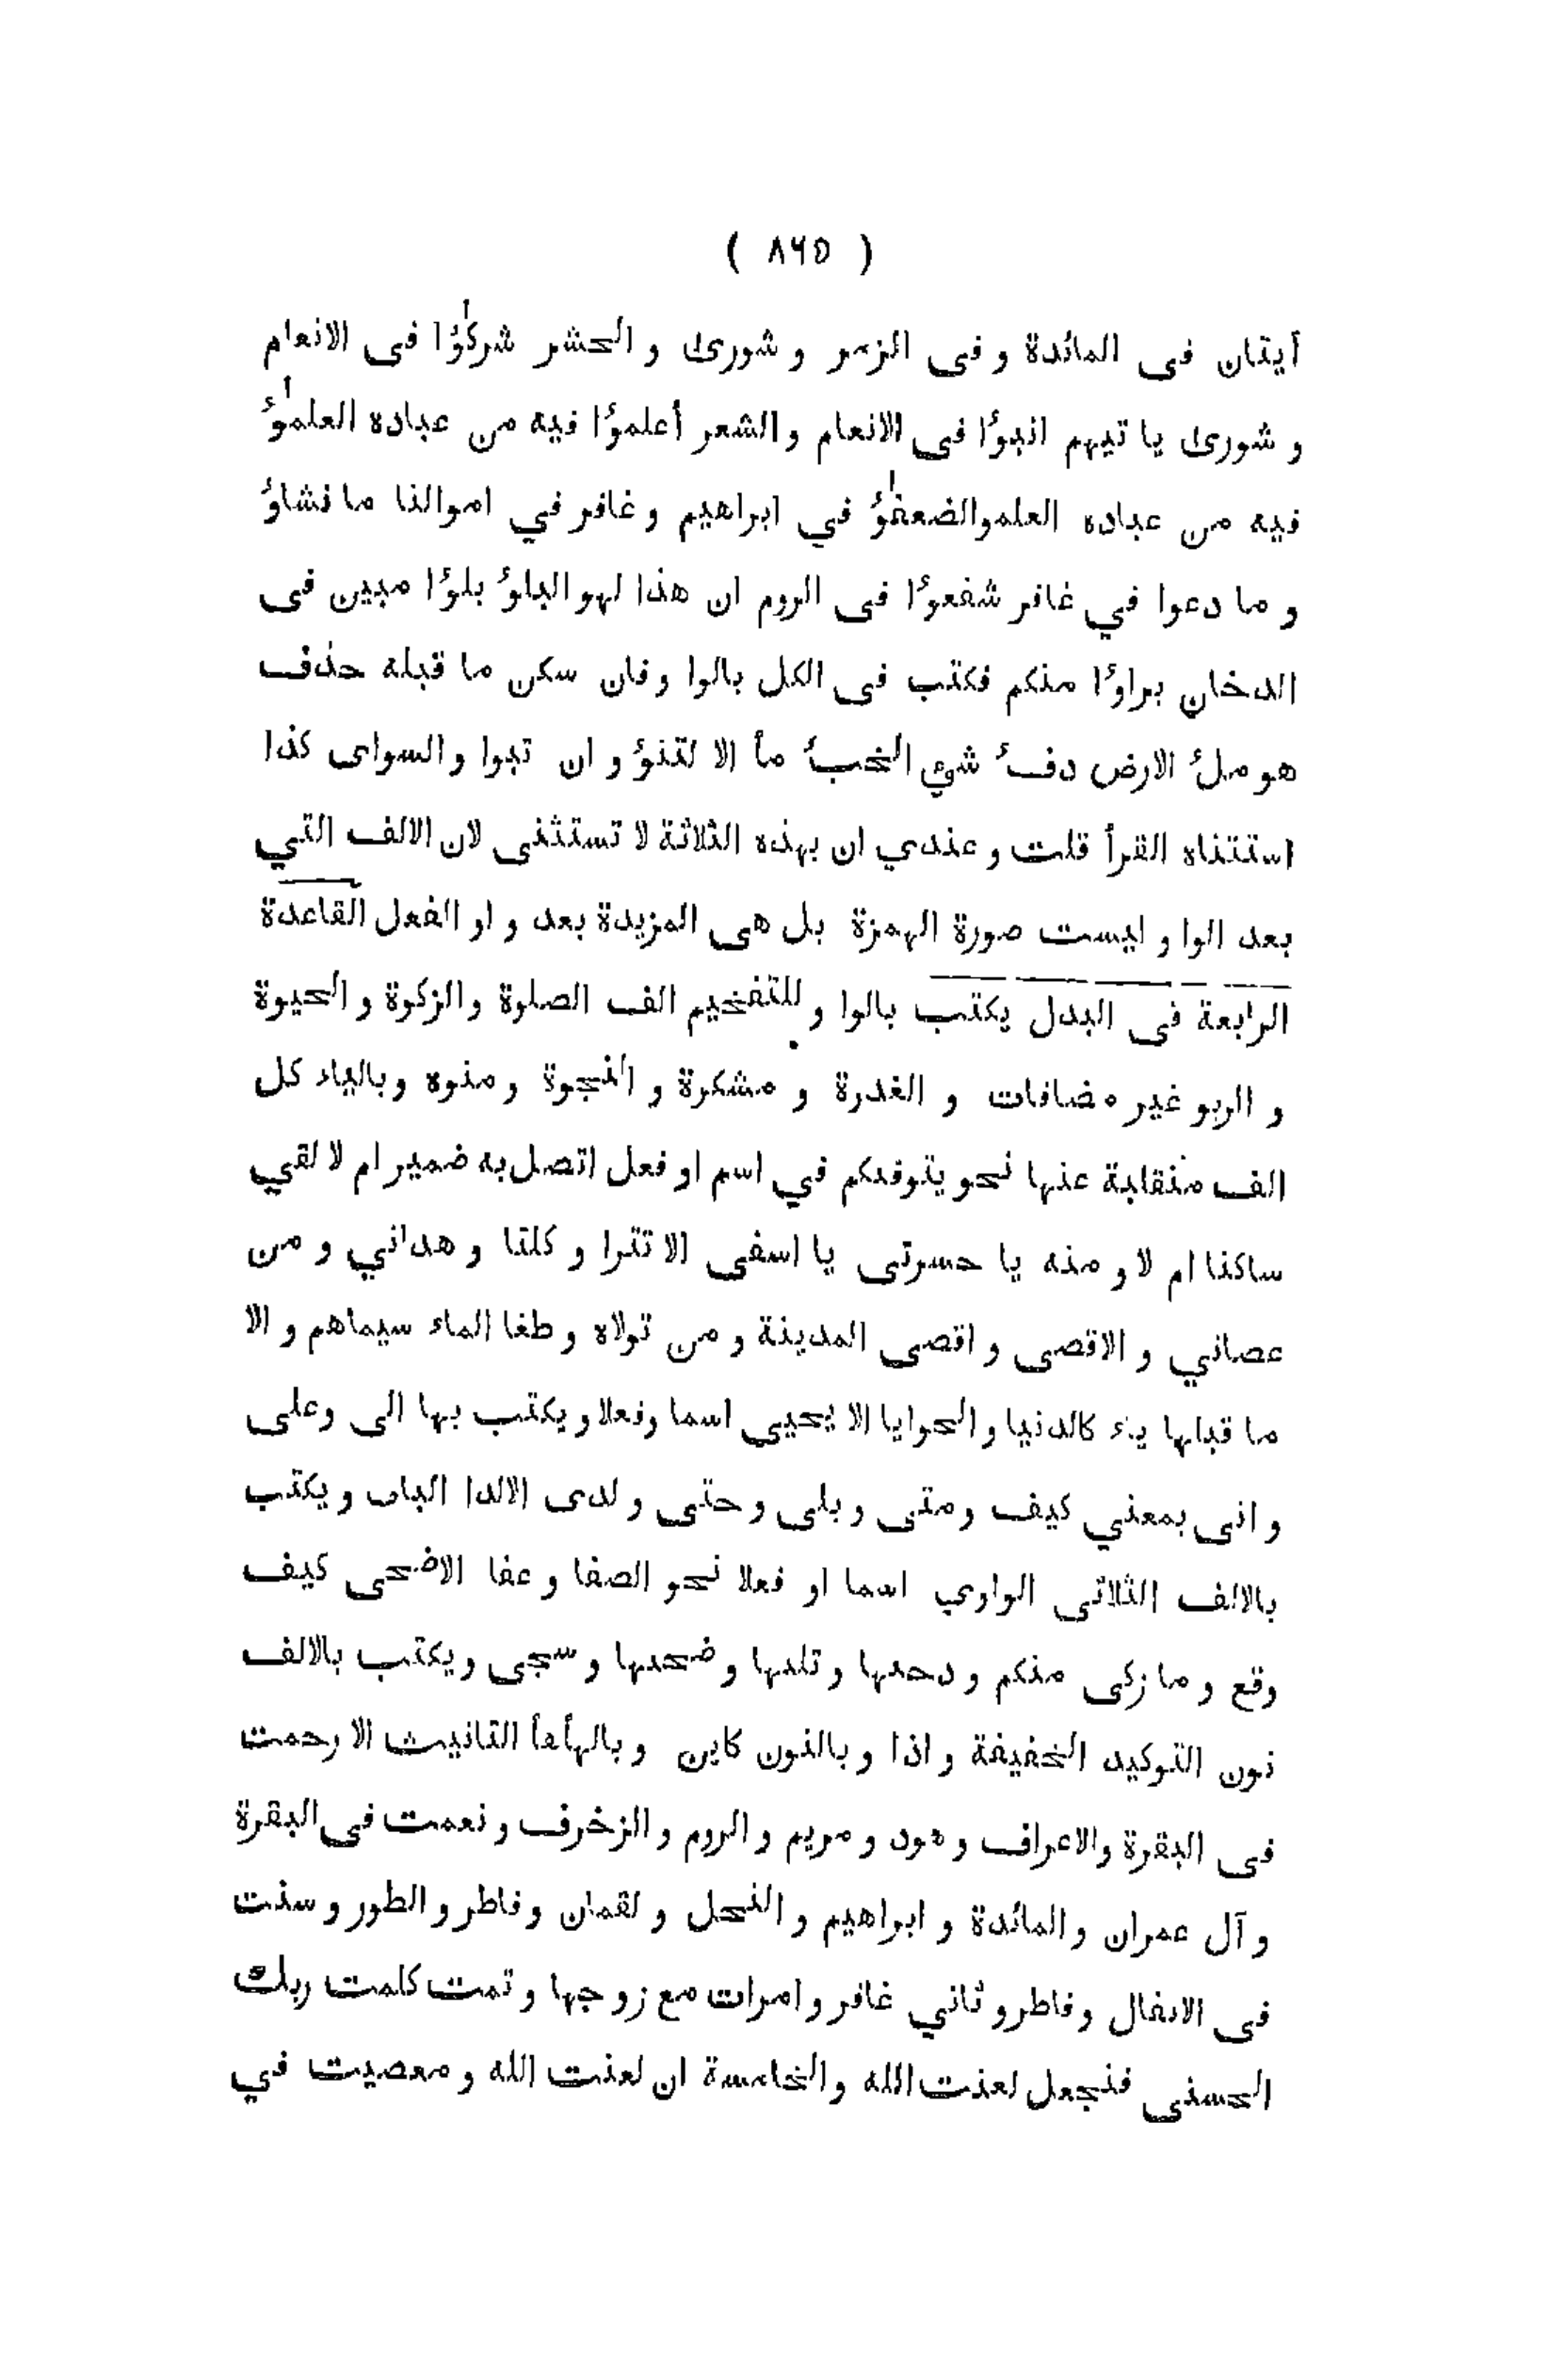 ( ٨٧٥ )
آيتان فى المائدة و فى الزمر و شورى و الحشر شركٰؤا فى الانعام
و شورى يا تيهم انبؤا فى الانعام و الشعر أعلمؤا فيه من عباده العلمٰؤ
فيه من عباده العلمو الضعفٰؤ في ابراهيم و غافر في اموالنا ما نشاؤ
و ما دعوا في غافر شفعؤا فى الروم ان هذا لهو البلوٴ بلوٴا مبين فى
الدخان براوٴا منكم فكتب فى الكل بالوا و فان سكن ما قبله حذف
هو ملٴ الارض دفٴ شيٴ الخبٴ مأ الا لتنؤ و ان تبوا و السواى كذا
استتناه القرأ قلت و عندي ان بهذه الثلاثة لا تستثنى لان الالف التي
بعد الوا و ليست صورة الهمزة بل هى المزيدة بعد و او الفعل القاعدة
الرابعة فى البدل يكتب بالوا و للتفخيم الف الصلوة و الزكوة و الحيوة
و الربو غير مضافات و الغدرة و مشكرة و النجوة و منوه و بالياء كل
الف منقلبة عنها نحو يتوفدكم في اسم او فعل اتصل به ضمير ام لا لقي
ساكنا ام لا و منه يا حسرتى يا اسفى الا تترا و كلتا و هداني و من
عصاني و الاقصى و اقصى المدينة و من تولاه و طغا الماء سيماهم و الا
ما قبلها ياء كالدنيا و الحوايا الا يحيى اسما و فعلا و يكتب بها الى و على
و انى بمعني كيف و متى و بلى و حتى و لدى الالدا الباب و يكتب
بالالف الثلاثى الواوي اسما او فعلا نحو الصفا و عفا الاضحى كيف
وقع و ما زكى منكم و دحدها و تلدها و ضحدها و سجى و يكتب بالالف
نون التوكيد الخفيفة و اذا و بالنون كاين و بالهأ هأ التانيث الا رحمت
فى البقرة و الاعراف و هود و مريم و الروم و الزخرف و نعمت فى البقرة
و آل عمران و المائدة و ابراهيم و النحل و لقمان و فاطر و الطور و سنت
فى الانفال و فاطر و ثاني غافر و امرات مع زوجها و تمت كلمت ربك
الحسنى فنجعل لعنت الله و الخامسة ان لعنت الله و معصيت في